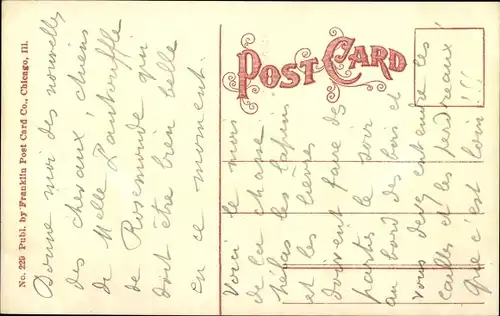 No. 229 Publ. by Franklin Post Card Co., Chicago, Ill.
POST CARD
Donne moi des nouvelles,
des chevaux, chiens
de Melle
de Rosemonde qui
doit être bien belle
en ce moment.
Voici le mois
de la chasse
hélas les lapins
et les lièvres
doivent faire des
parties le soir
au bord des bois et
vous devez entendre les
cailles et les perdreaux
Que c'est loin !!!